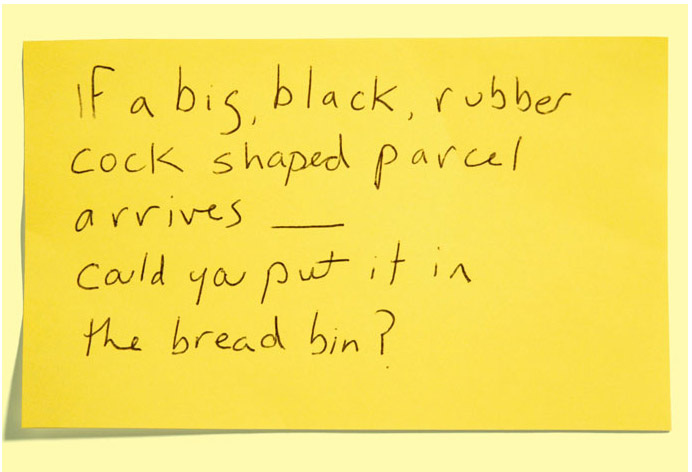 If a big, black, rubber
cock shaped parcel
arrives __
could you put it in
the bread bin?